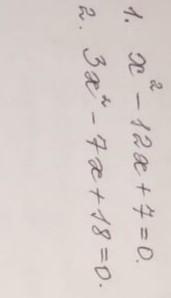 1. x² - 12x + 7 = 0.
2. 3x² - 7x + 18 = 0.